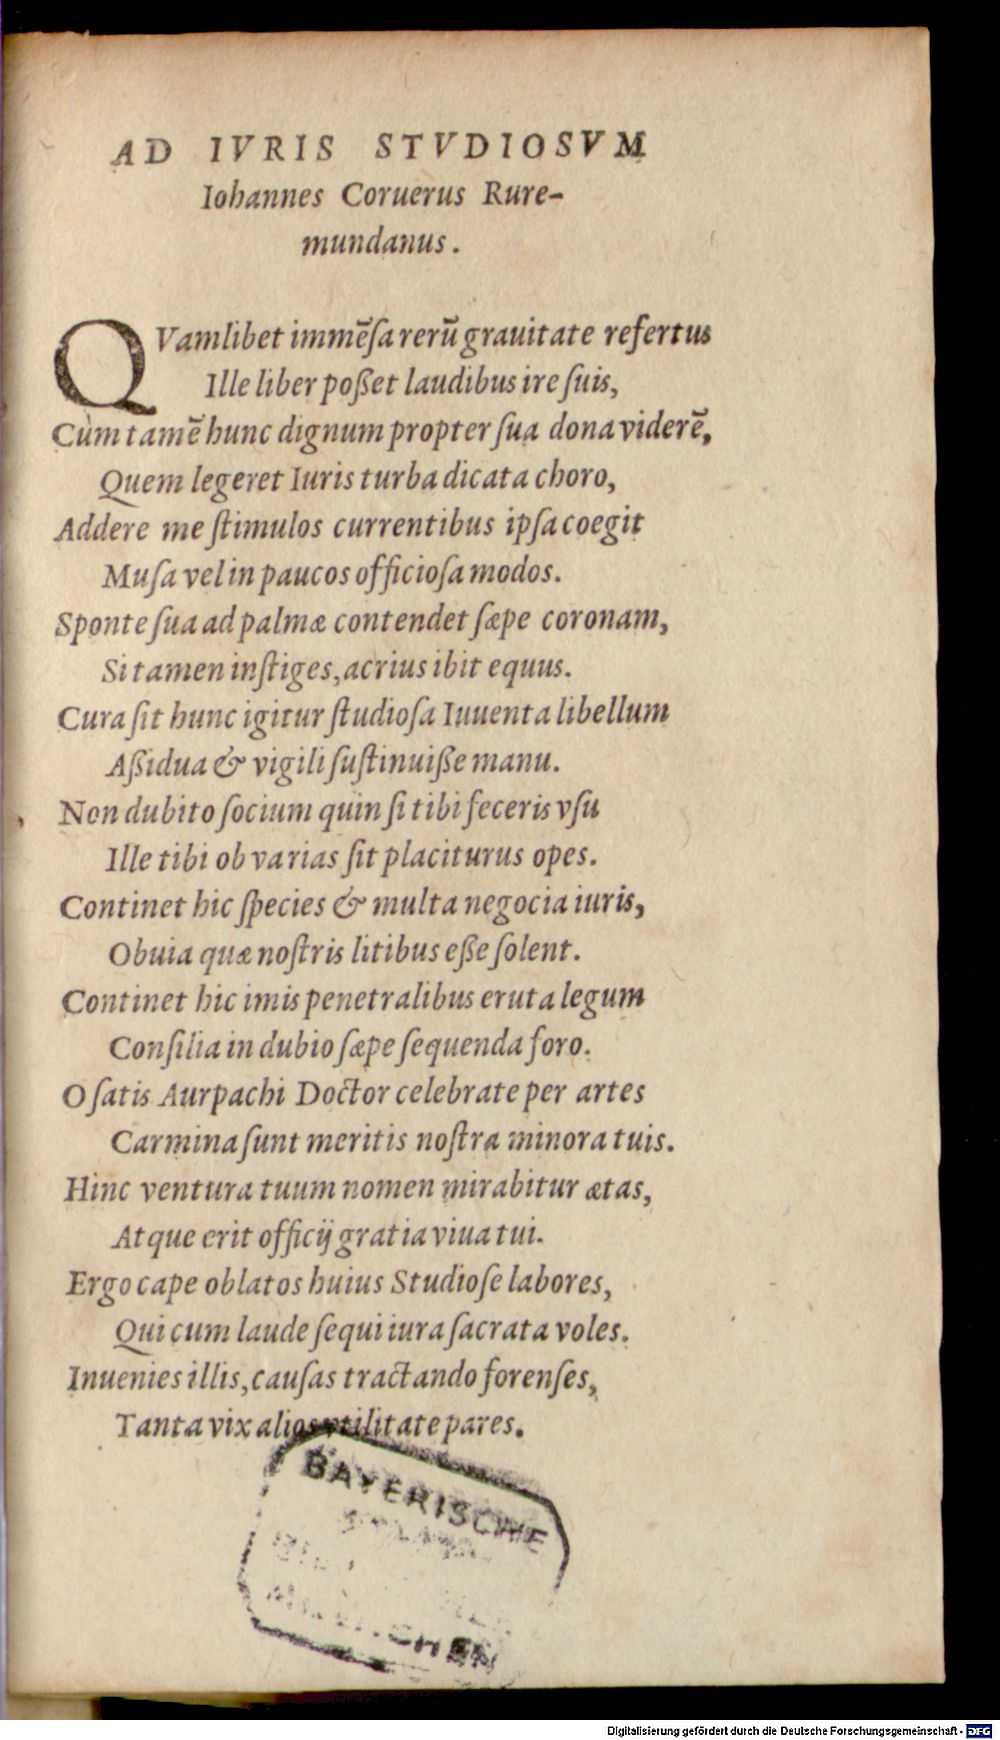 AD IVRIS STVDIOSVM
Iohannes Coruerus Rure-
mundanus.
QVamlibet immẽſa rerũ grauitate refertus
Ille liber poßet laudibus ire ſuis,
Cùm tamẽ hunc dignum propter ſua dona viderẽ,
Quem legeret Iuris turba dicata choro,
Addere me ſtimulos currentibus ipſa coegit
Muſa vel in paucos officioſa modos.
Sponte ſua ad palmæ contendet ſæpe coronam,
Si tamen inſtiges, acrius ibit equus.
Cura ſit hunc igitur ſtudioſa Iuuenta libellum
Aßidua & vigili ſuſtinuiße manu.
Non dubito ſocium quin ſi tibi feceris vſu
Ille tibi ob varias ſit placiturus opes.
Continet hic ſpecies & multa negocia iuris,
Obuia quæ noſtris litibus eße ſolent.
Continet hic imis penetralibus eruta legum
Conſilia in dubio ſæpe ſequenda foro.
O ſatis Aurpachi Doctor celebrate per artes
Carmina ſunt meritis noſtra minora tuis.
Hinc ventura tuum nomen mirabitur ætas,
Atque erit officij gratia viua tui.
Ergo cape oblatos huius Studioſe labores,
Qui cum laude ſequi iura ſacrata voles.
Inuenies illis, cauſas tractando forenſes,
Tanta vix alios vtilitate pares.
BAYERISCHE
Digitalisierung gefördert durch die Deutsche Forschungsgemeinschaft - DFG